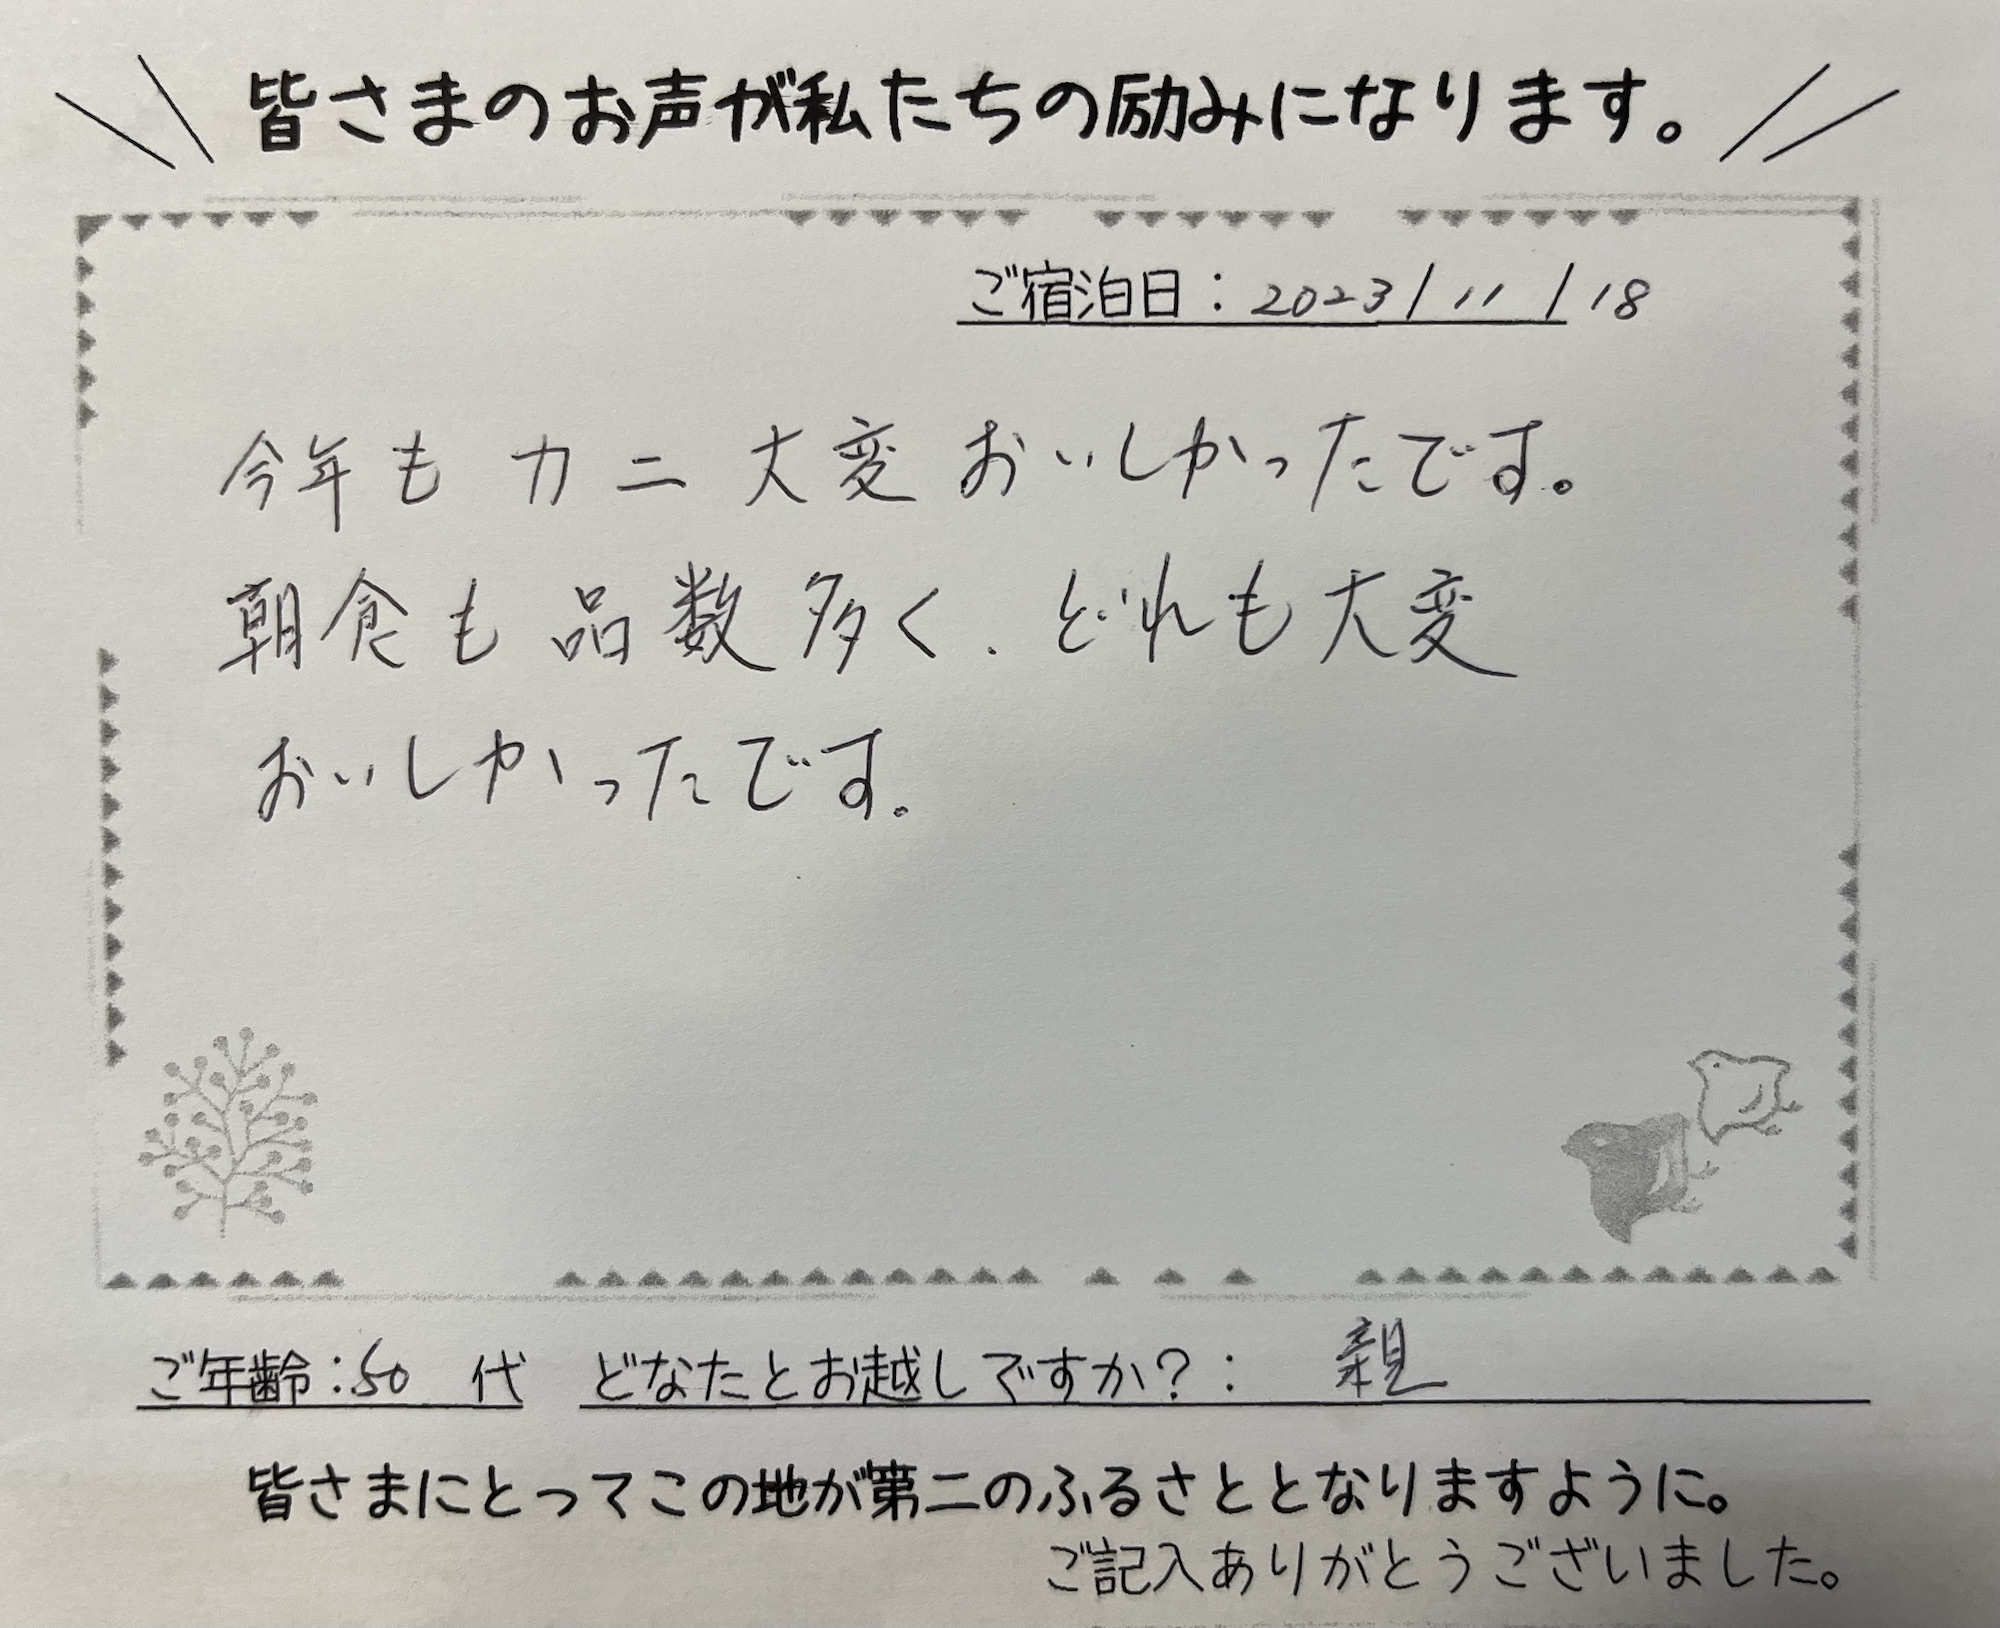 皆さまのお声が私たちの励みになります。
ご宿泊日：2023/11/18
今年もカニ大変おいしかったです。
朝食も品数多く、どれも大変
おいしかったです。
ご年齢：50代 どなたとお越しですか？： 親
皆さまにとってこの地が第二のふるさととなりますように。
ご記入ありがとうございました。